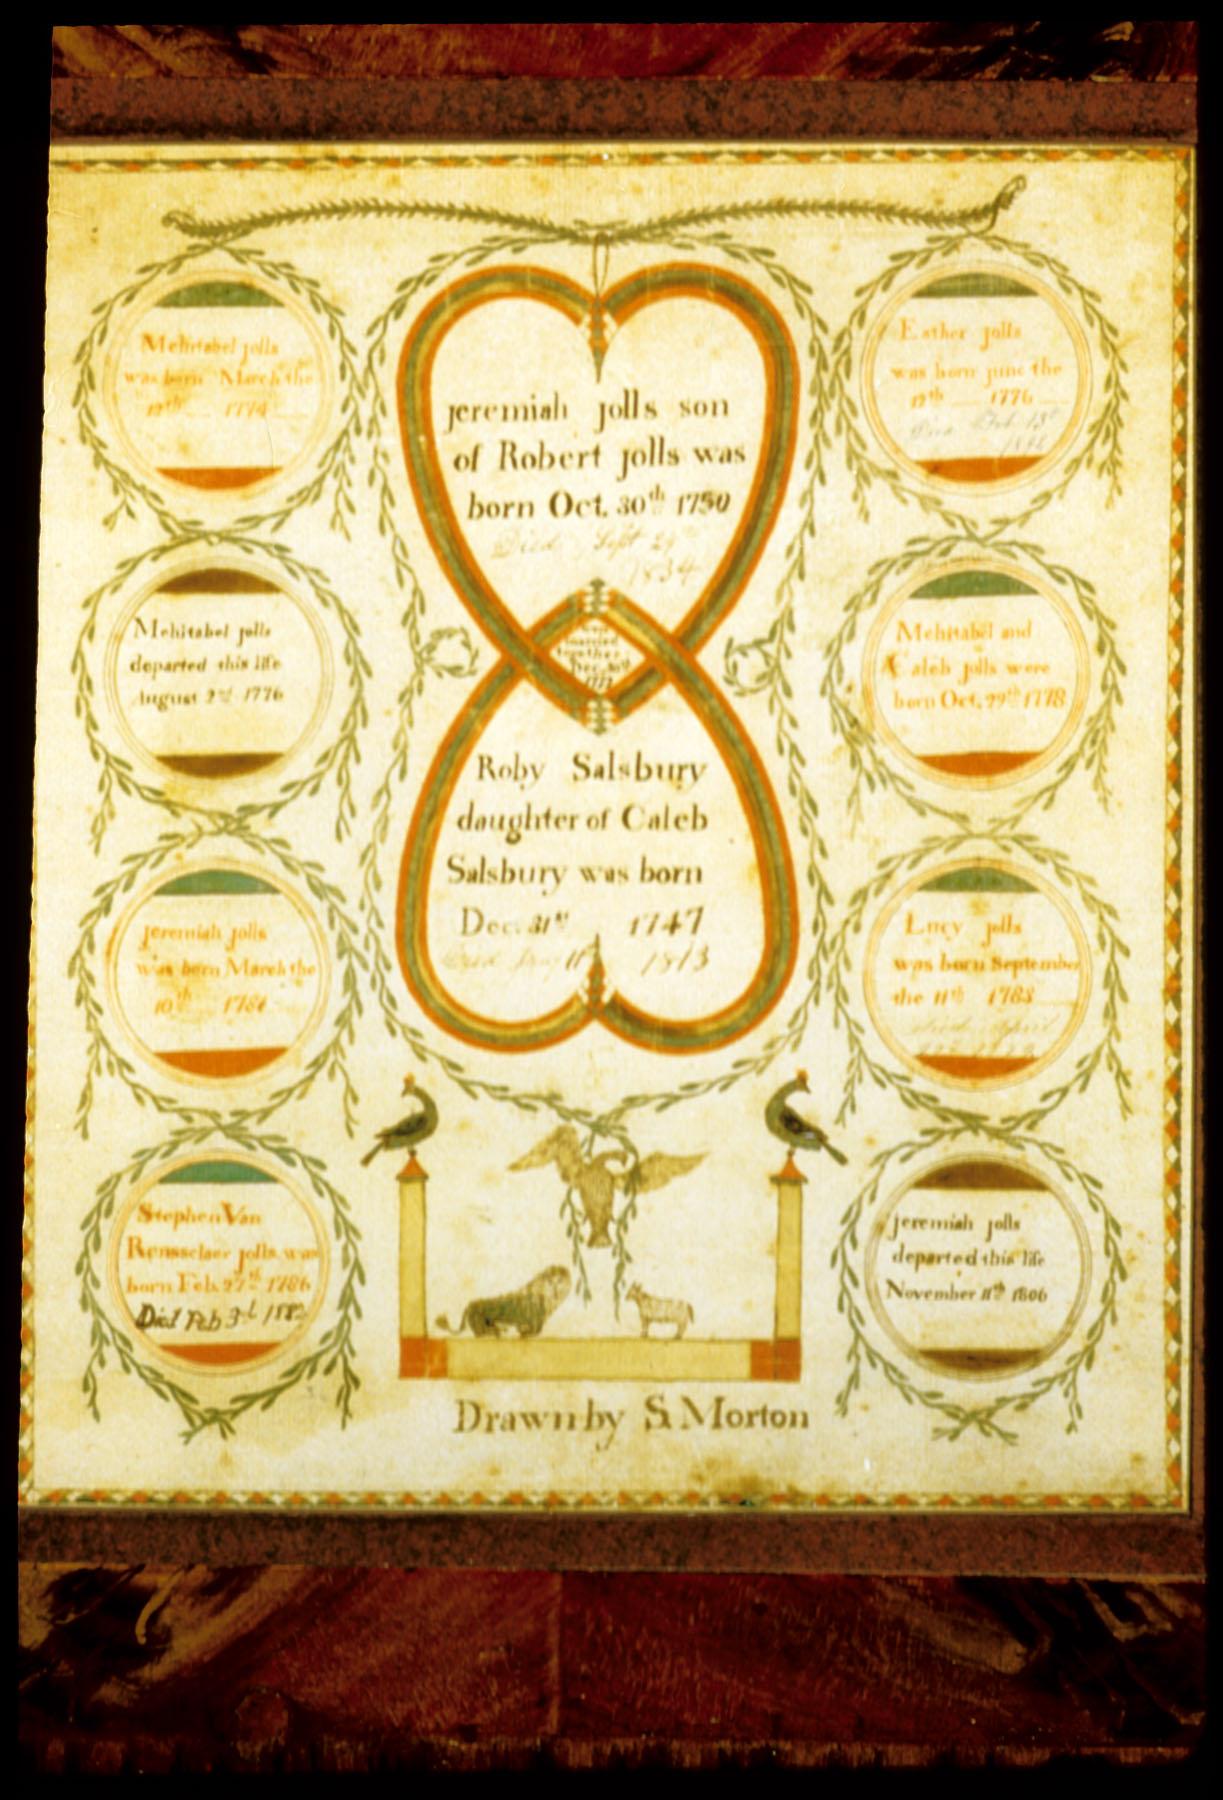 Mehitabel jolls
was born March the
12th 1774
Mehitabel jolls
departed this life
August 2nd 1776
jeremiah jolls
was born March the
10th 1781
Stephen Van
Rensselaer jolls was
born Feb. 27th 1786
Died Feb 3d
jeremiah jolls son
of Robert jolls was
born Oct. 30th 1750
Died Sept 29
1834
were
married
together
Dec.
1772
Roby Salsbury
daughter of Caleb
Salsbury was born
Dec. 31st 1747
Died 11 1813
Esther jolls
was born june the
12th 1776
Died
Mehitabel and
Caleb jolls were
born Oct. 29th 1778
Lucy jolls
was born September
the 11th 1783
Died April
jeremiah jolls
departed this life
November 11th 1806
Drawn by S. Morton